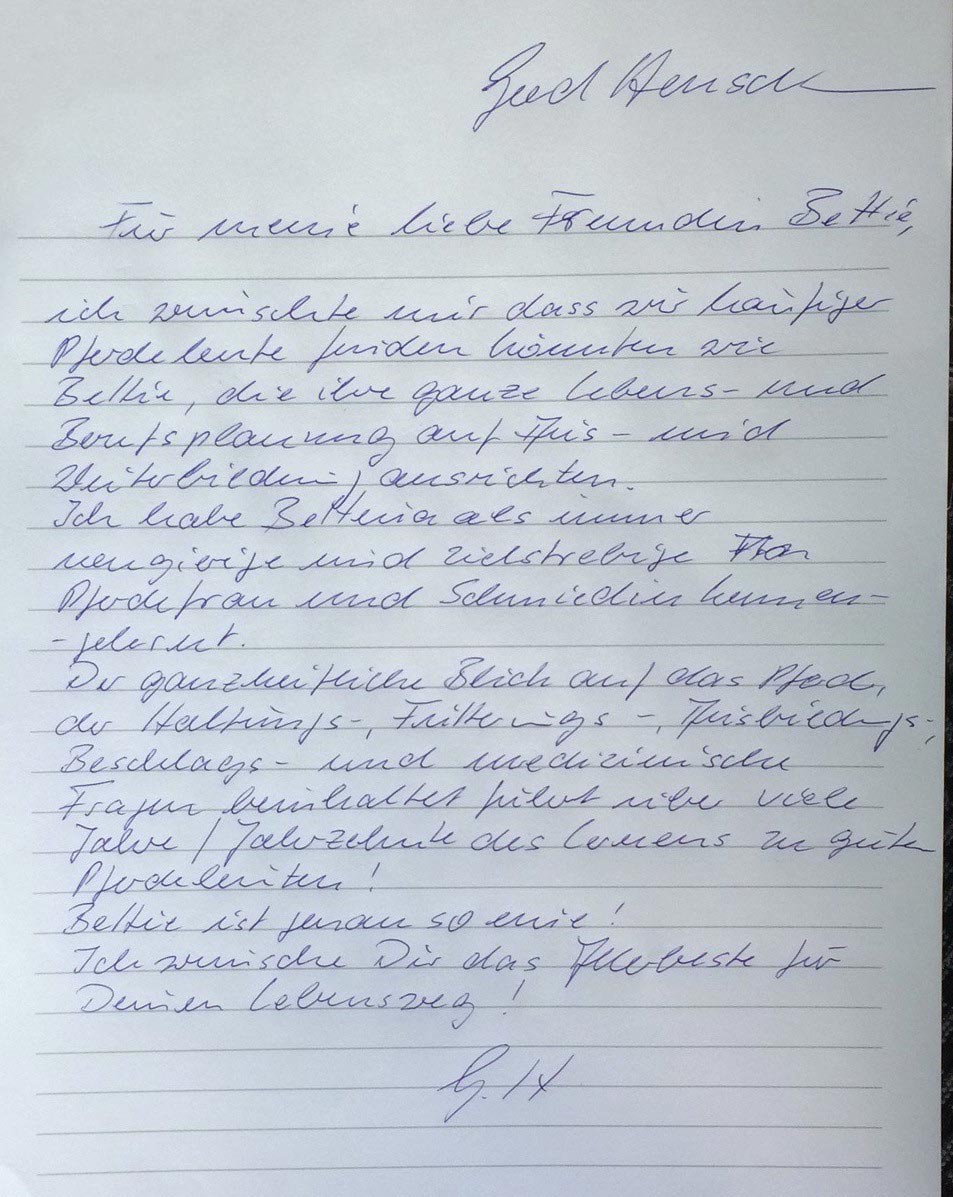 Gerd Heusch
Für meine liebe Freundin Bettie,
ich wünschte mir dass wir häufiger
Pferdeleute finden könnten wie
Bettie, die ihre ganze Lebens- und
Berufsplanung auf Aus- und
Weiterbildung ausrichten.
Ich habe Bettina als immer
neugierige und zielstrebige
Pferdefrau und Schmiedin kennen-
-gelernt.
Der ganzheitliche Blick auf das Pferd,
der Haltungs-, Fütterungs-, Ausbildungs-,
Beschlags- und medizinische
Fragen beinhaltet führt über viele
Jahre / Jahrzehnte des Lernens zu guten
Pferdeleuten!
Bettie ist genau so eine!
Ich wünsche Dir das Allerbeste für
Deinen Lebensweg!
G. H